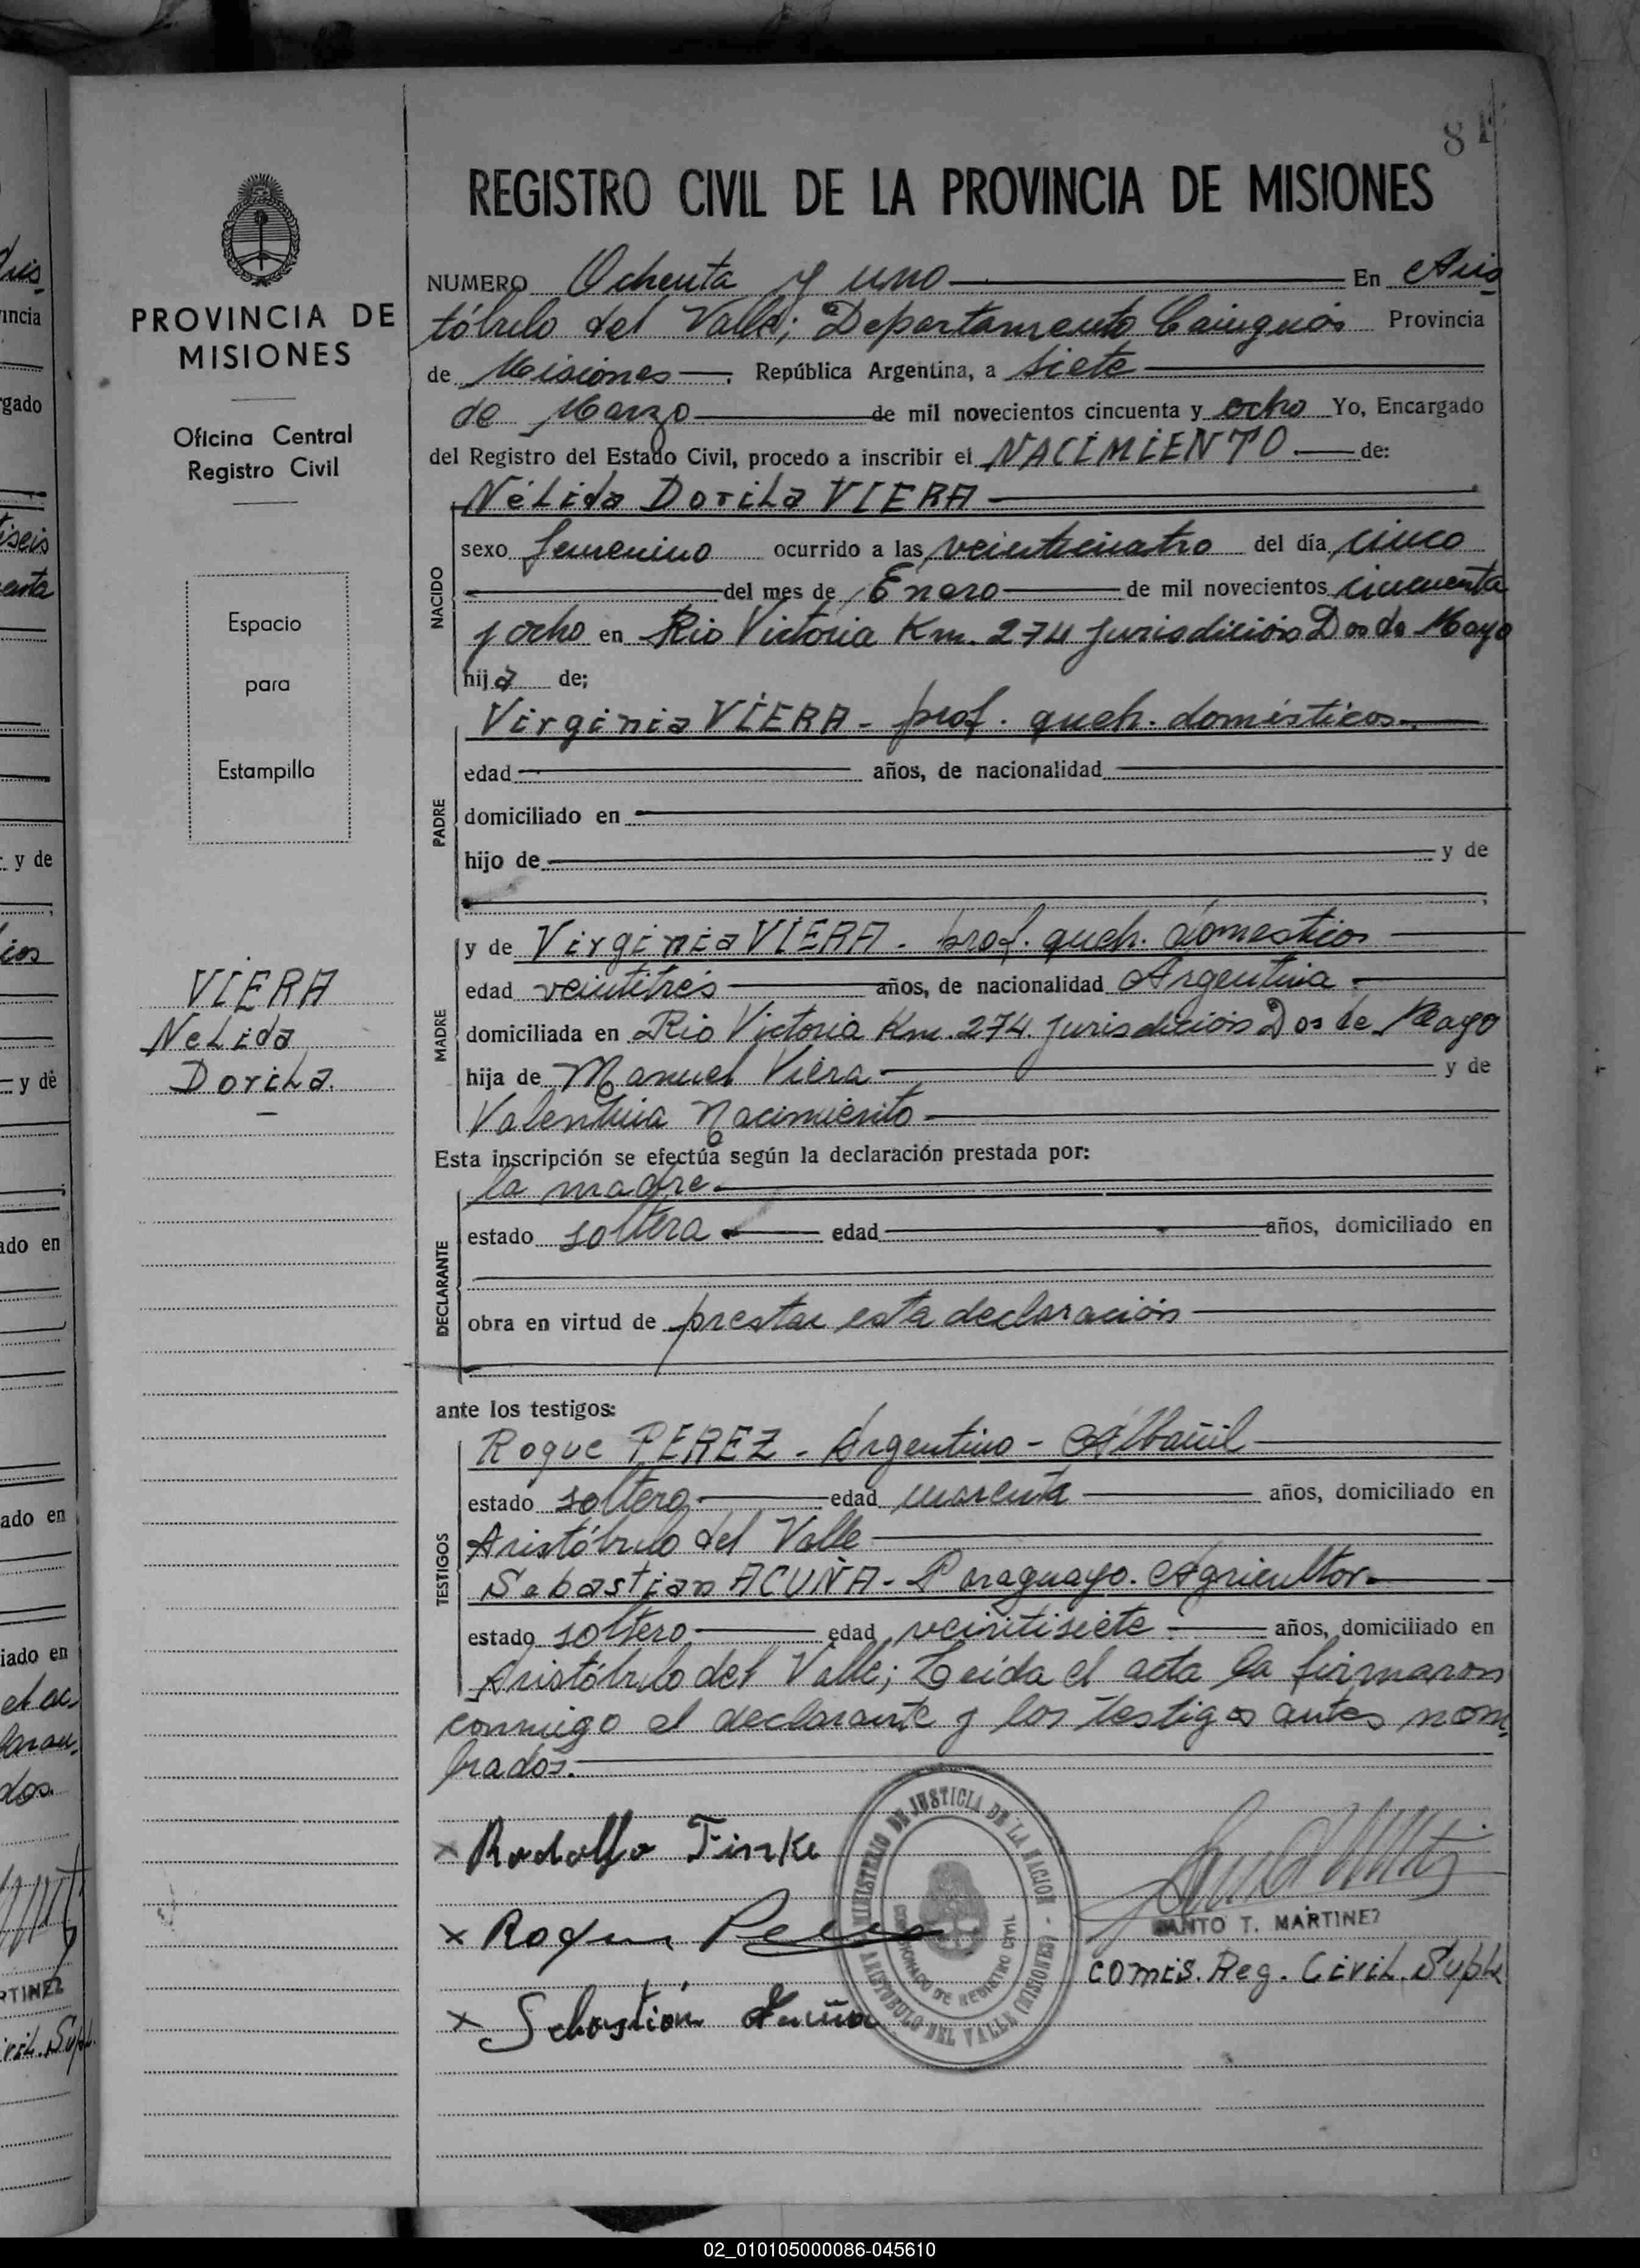 81
REGISTRO CIVIL DE LA PROVINCIA DE MISIONES
PROVINCIA DE
MISIONES
Oficina Central
Registro Civil
Espacio
para
Estampilla
VIERA
NéLida
DoriLa.
NUMERO Ochenta y uno En Aris
tóbulo del Valle; Departamento Cainguás Provincia
de Misiones. República Argentina, a siete
de Marzo de mil novecientos cincuenta y ocho Yo, Encargado
del Registro del Estado Civil, procedo a inscribir el NACIMIENTO de:
NACIDO
NéLida DoriLa VIERA
sexo femenino ocurrido a las veinticuatro del día cinco
del mes de Enero de mil novecientos cincuenta
y ocho en Rio Victoria Km. 274 jurisdición Dos de Mayo
hija de;
PADRE
Virginia VIERA - prof. queh. domésticos.
edad años, de nacionalidad
domiciliado en
hijo de y de
MADRE
y de Virginia VIERA - prof. queh. domestico
edad veintitrés años, de nacionalidad Argentina
domiciliada en Rio Victoria Km. 274. jurisdición Dos de Mayo
hija de Manuel Viera y de
Valentina Nacimiento
Esta inscripción se efectúa según la declaración prestada por:
DECLARANTE
la madre.
estado soltera edad años, domiciliado en
obra en virtud de prestar esta declaración
ante los testigos:
TESTIGOS
Roque PEREZ - Argentino - Albañil
estado soltero edad cuarenta años, domiciliado en
Aristóbulo del Valle
Sebastian ACUÑA - Paraguayo. Agricultor.
estado soltero edad veintisiete años, domiciliado en
Aristóbulo del Valle; Leida el acta la firmaron
conmigo el declarante y los testigos antes nom
brados.
x Rodolfo Finke
x Roque Perez
x Sebastión Acuña
MINISTERIO DE JUSTICIA DE LA NACION
ARISTOBULO DEL VALLE (MISIONES)
DE REGISTRO CIVIL
SANTO T. MARTINEZ
comis. Reg. Civil. SupL
02_010105000086-045610